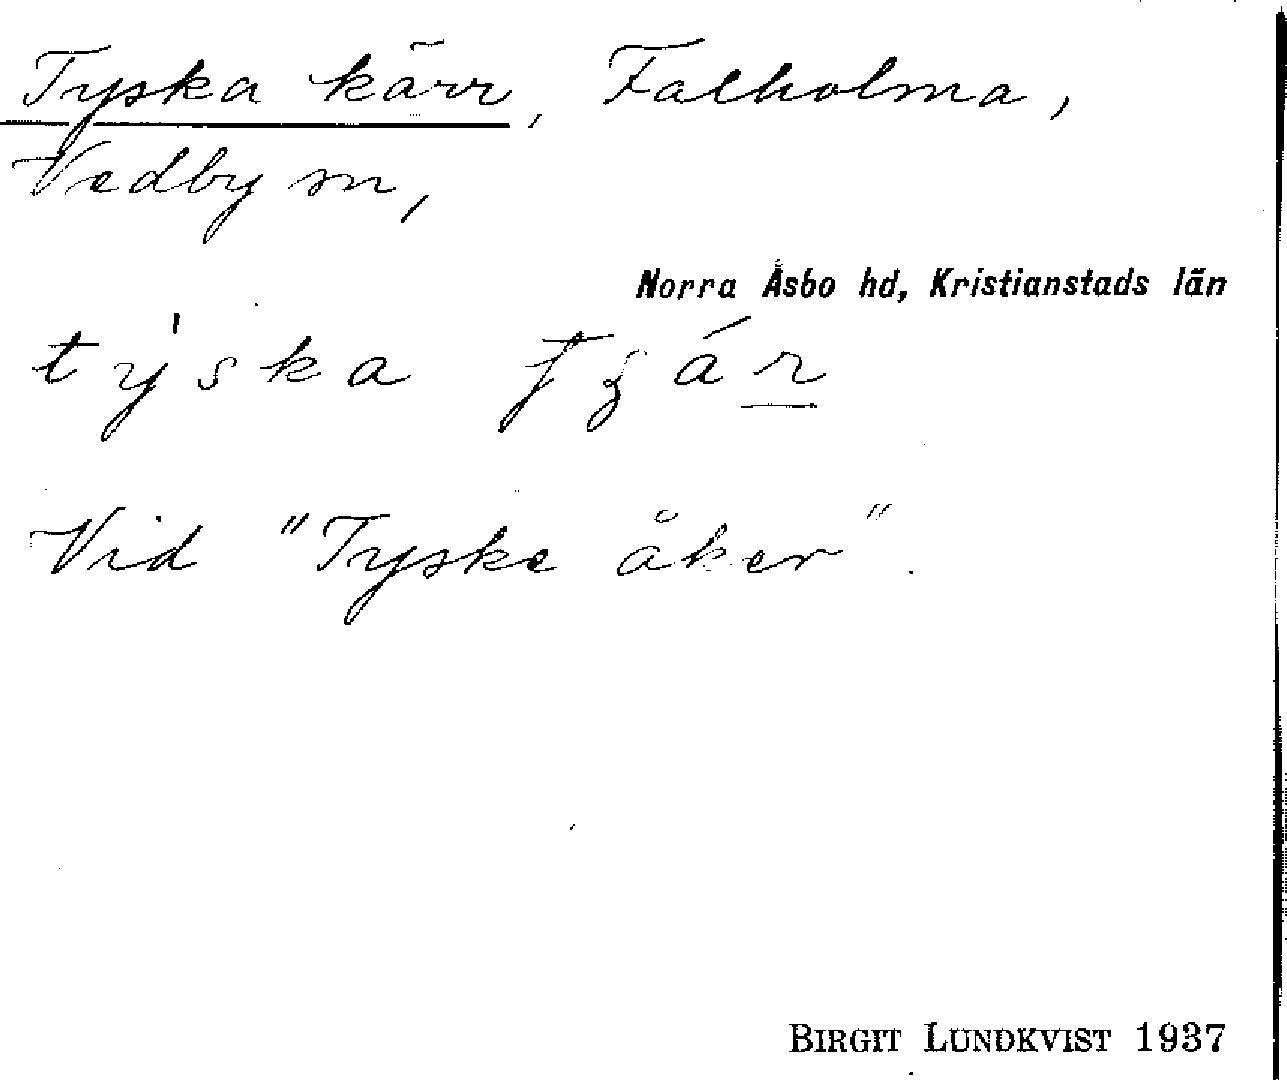 Tyska kärr, Falholma,
Vedby sn,
Norra Åsbo hd, Kristianstads län
týska
Vid "Tyske åker".
BIRGIT LUNDKVIST 1937